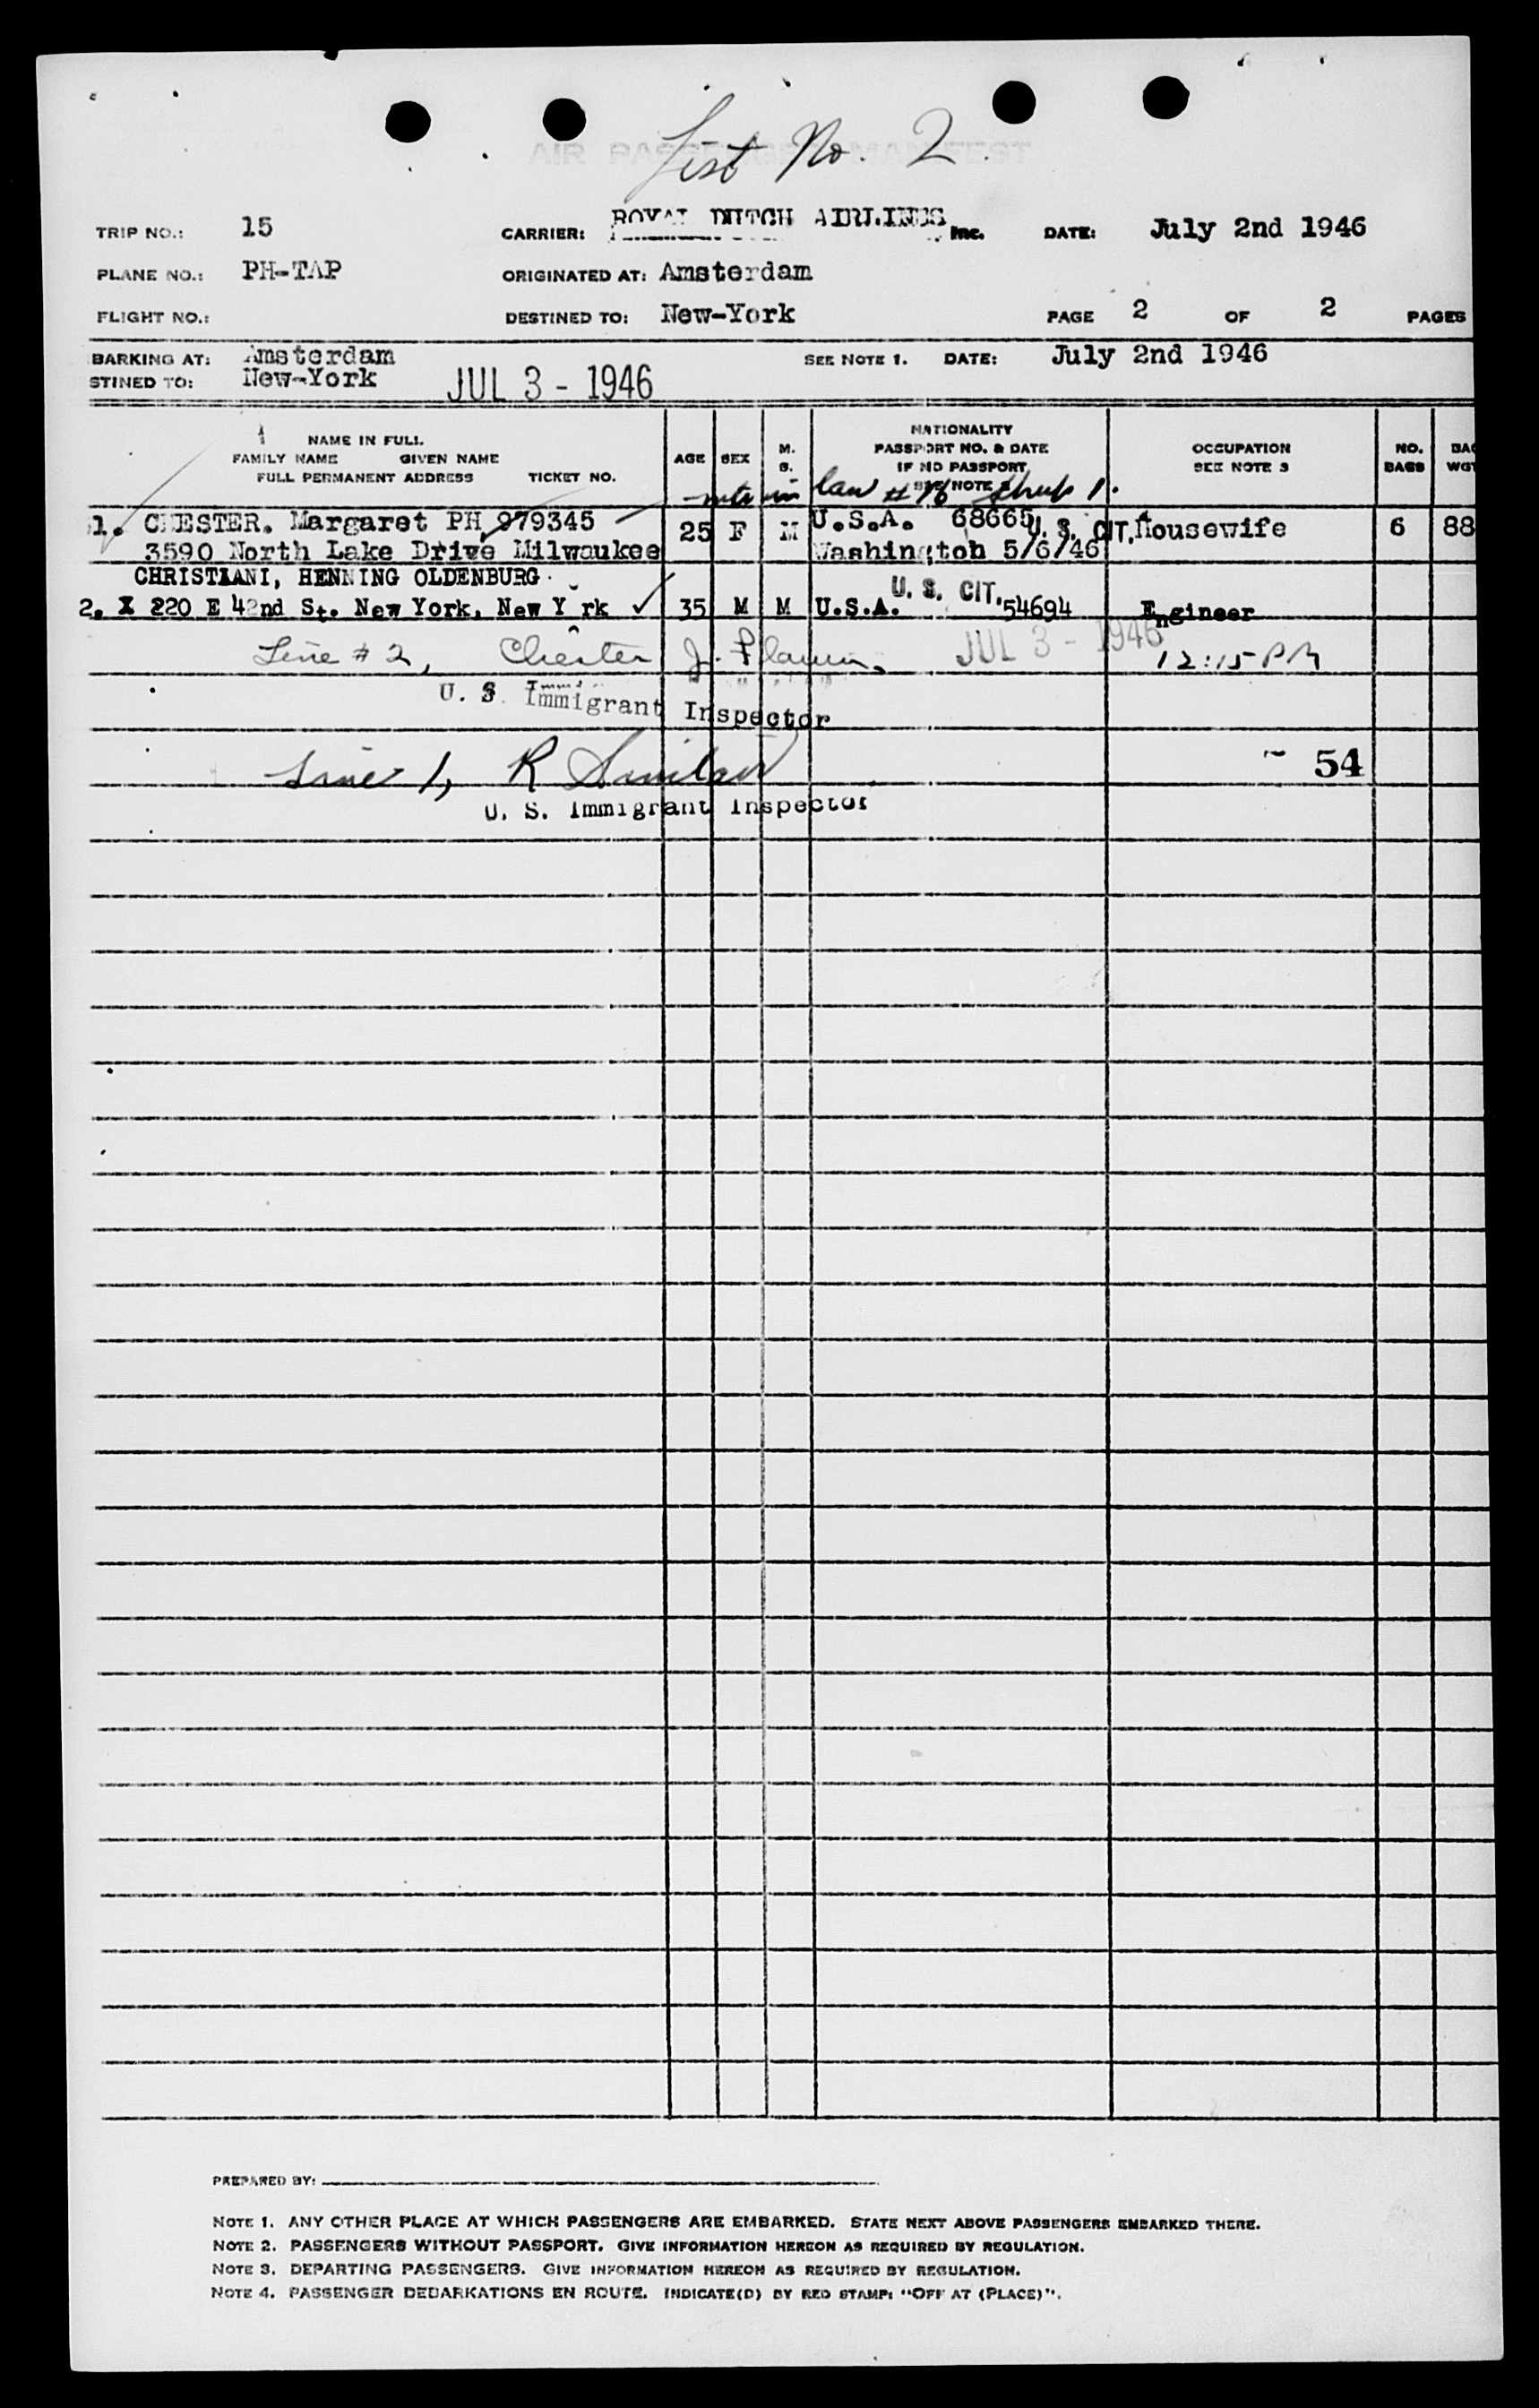 List No. 2.
AIR PASSENGER MANIFEST
TRIP NO.: 15 CARRIER: ROYAL DUTCH AIRLINES Inc. DATE: July 2nd 1946
PLANE NO.: PH-TAP ORIGINATED AT: Amsterdam
FLIGHT NO.: DESTINED TO: New-York PAGE 2 OF 2 PAGES
BARKING AT: Amsterdam SEE NOTE 1. DATE: July 2nd 1946
STINED TO: New-York JUL 3 - 1946
NAME IN FULL
FAMILY NAME GIVEN NAME
FULL PERMANENT ADDRESS TICKET NO.
AGE SEX M. S.
NATIONALITY
PASSPORT NO. & DATE
IF NO PASSPORT,
SEE NOTE
OCCUPATION
SEE NOTE 3
NO. BAGS
BAG WGT
law # 16 thru 1.
1. CHESTER. Margaret PH 979345 25 F M U.S.A. 68665 U. S. CIT. Housewife 6 88
3590 North Lake Drive Milwaukee Washington 5/6/46
CHRISTIANI, HENNING OLDENBURG
2. X 220 E 42nd St. New York, New Y rk ✓ 35 M M U.S.A. U. S. CIT. 54694 Engineer
Line # 2, Chester J. JUL 3 - 1946 12:15 PM
U. S. Immigrant Inspector
Line 1, R Sinclair 54
U. S. Immigrant Inspector
PREPARED BY:
NOTE 1. ANY OTHER PLACE AT WHICH PASSENGERS ARE EMBARKED. STATE NEXT ABOVE PASSENGERS EMBARKED THERE.
NOTE 2. PASSENGERS WITHOUT PASSPORT. GIVE INFORMATION HEREON AS REQUIRED BY REGULATION.
NOTE 3. DEPARTING PASSENGERS. GIVE INFORMATION HEREON AS REQUIRED BY REGULATION.
NOTE 4. PASSENGER DEBARKATIONS EN ROUTE. INDICATE(D) BY RED STAMP: "OFF AT (PLACE)".